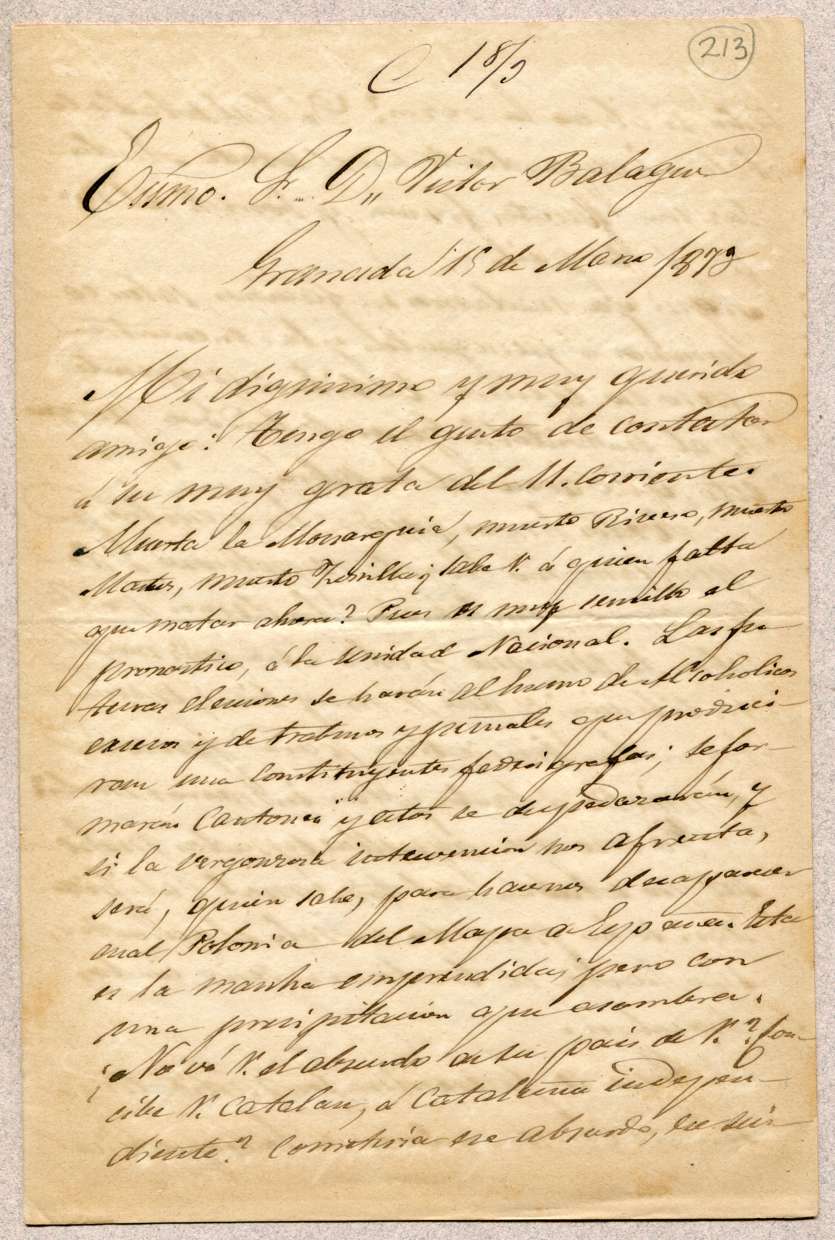 213
C 18/3
Exmo. Sr. Dn Victor Balaguer
Granada 15 de Marzo 1873
Mi dignisimo y muy querido
amigo: Tengo el gusto de contestar
á su muy grata del 11. corriente.
Muerta la Monarquia, muerto Rivero, muerto
Martos, muerto Zorrilla ¿sabe V. á quien falta
que matar ahora? Pues es muy sencillo el
pronostico, á la unidad Nacional. Las fu
turas elecciones se harán al humo de Alcoholicos
excesos y de trabucos y puñales que produci-
ran una Constituyentes; se for-
marán Cantones y estos se despedazarán, y
si la vergonzosa intervencion nos afrenta,
será, quien sabe, para hacernos desaparecer
cual Polonia del Mapa a España. Esta
es la marcha emprendida; pero con
una precipitacion que asombra.
¿No vé V. el absurdo de su pais de V.? Con-
cibe V. catalan, á Cataluña indepen-
diente? Cometeria ese absurdo, en sus